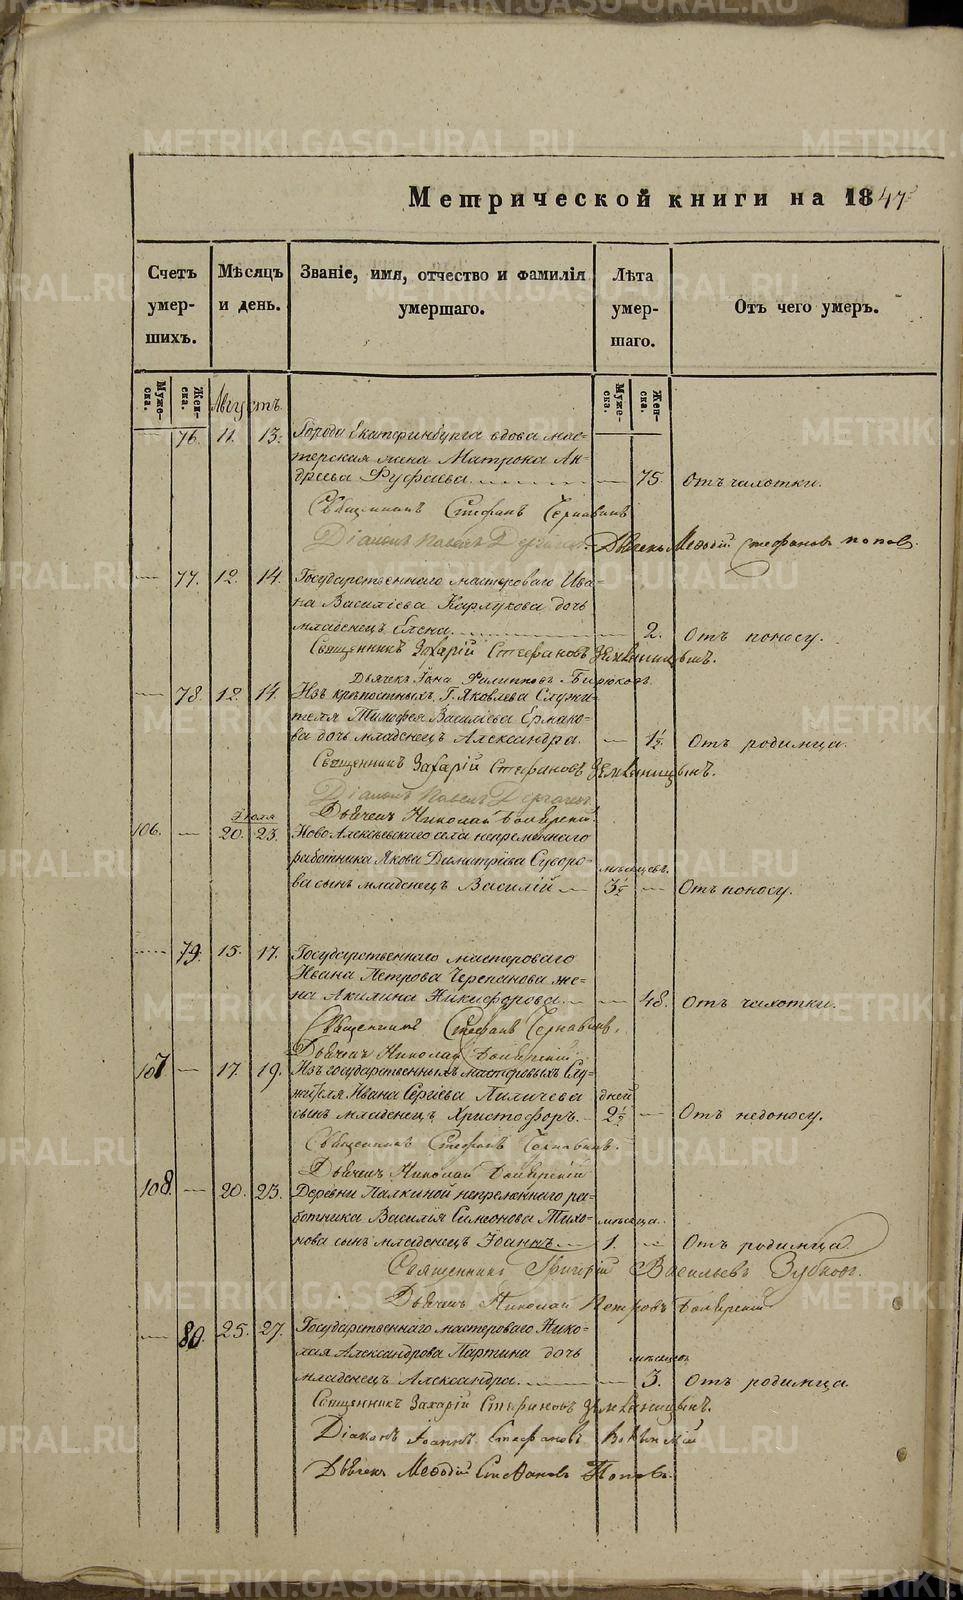 Метрической книги на 1847
Счетъ умер-шихъ.
Мѣсяцъ и день.
Званіе, имя, отчество и фамилія умершаго.
Лѣта умер-шаго.
Отъ чего умеръ.
Муже-ска.
Жен-ска.
Августъ.
Муже-ска.
Жен-ска.
76. 11. 13. Города Екатеринбурга вдова мас-
терская жена Матрона Ан-
дреева 75. Отъ чахотки.
Священникъ Стефанъ Чернавинъ
Діаконъ Павелъ Дьячекъ Меѳодій Стефановъ Поповъ.
77. 12. 14. Государственнаго мастероваго Ива-
на Василіева Карлукова дочь
младенецъ Елена. 2. Отъ поносу.
Священникъ Захарій Стефановъ Земляницынъ.
Дьячекъ Іона Филипповъ Бирюковъ
78. 12. 14. Изъ крѣпостныхъ Г. Яковлева Служи-
теля Тимофея Василіева Ермако-
ва дочь младенецъ Александра. 1½. Отъ родимца.
Священникъ Захарій Стефановъ Земляницынъ.
Діаконъ Павелъ
Дьячекъ Николай
Іюля
106. 20. 23. Ново Алексѣевскаго села непремѣннаго
работника Якова Димитріева Суворо- мѣсяцевъ.
ва сынъ младенецъ Василій 3½ Отъ поносу.
79. 15. 17. Государственнаго мастероваго
Ивана Петрова Черепанова же-
на Акилина Никифорова. 48. Отъ чахотки.
Священникъ Стефанъ Чернавинъ.
Дьячекъ Николай
107 17. 19. Изъ государственныхъ мастеровыхъ Слу-
жителя Ивана Сергіева Пиличева дней
сынъ младенецъ Христофоръ. 2½ Отъ недоносу.
Священникъ Стефанъ Чернавинъ.
Дьячекъ Николай
108. 20. 23. Деревни Палкиной непремѣннаго ра-
ботника Василія Симеонова Тихо- мѣсяца.
нова сынъ младенецъ Іоаннъ. 1. Отъ родимца.
Священникъ Григорій Васильевъ Зубковъ.
Дьячекъ Николай Петровъ
80. 25. 27. Государственнаго мастероваго Нико-
лая Александрова Мартина дочь мѣсяцевъ
младенецъ Александра. 3. Отъ родимца.
Священникъ Захарій Стефановъ Земляницынъ.
Діаконъ Іоаннъ Стефановъ
Дьячекъ Меѳодій Стефановъ Поповъ.
METRIKI.GASO-URAL.RU